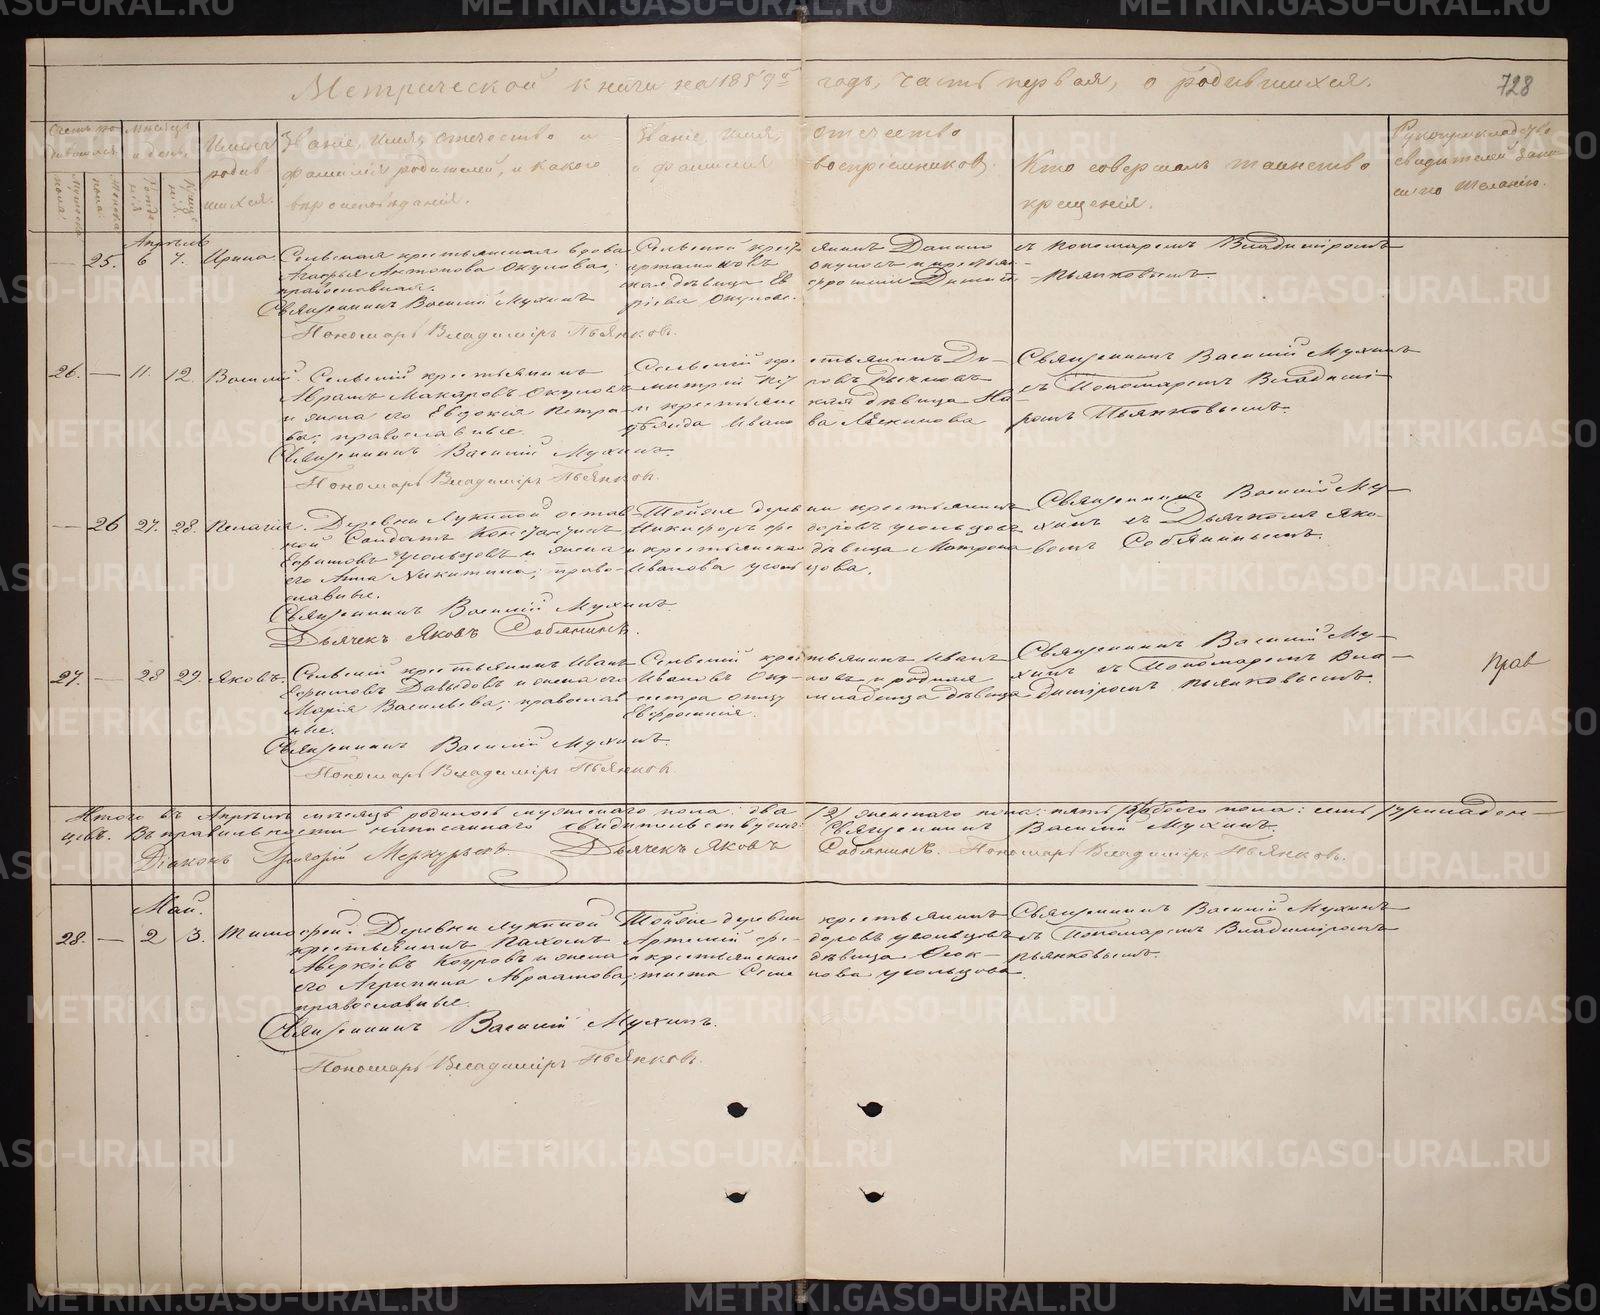 Метрической книги на 1859й годъ, часть первая, о родившихся.
728
Счетъ родившихся
Мужеска пола.
Женска пола.
Мѣсяцъ и день
Имена родившихся.
Званіе, имя, отчество и фамилія родителей, и какого вѣроисповѣданія.
Званіе, имя, отчество и фамилія воспріемниковъ.
Кто совершалъ таинство крещенія.
Рукоприкладство свидѣтелей записи по желанію.
Апрѣль
— 25. 6 7. Ирина
Сельская крестьянская вдова
Агафья Антонова Окулова;
православная.
Священникъ Василій Мухинъ
Пономарь Владиміръ Пьянковъ.
Данило
окуловъ и крестьян-
ская дѣвица
Окулова.
съ пономаремъ Владиміромъ
Пьянковымъ.
26. — 11. 12. Василій.
Сельскій крестьянинъ
Абрамъ Макаровъ Окуловъ
и жена его Евдокія Петро-
ва; православные.
Священникъ Василій Мухинъ.
Пономарь Владиміръ Пьянковъ.
Сельскій крестьянинъ Ди-
митрій
и крестьянская дѣвица
Ивано ва
Священникъ Василій Мухинъ
съ Пономаремъ Владимі-
ромъ Пьянковымъ.
— 26 27. 28. Пелагія.
Деревни Лукиной
Солдатъ Константинъ
Ефимовъ Усольцовъ и жена
его Анна Никитина; право-
славные.
Священникъ Василій Мухинъ
Дьячекъ Яковъ Собянинъ.
Тойже деревни крестьянинъ
Никифоръ Ѳедоровъ усольцовъ
и крестьянская дѣвица Матрона
Иванова усольцова.
Священникъ Василій Му-
хинъ съ Дьячкомъ Яко-
вомъ Собянинымъ.
27. — 28 29. Яковъ.
Сельскій крестьянинъ Иванъ
Ефимовъ Давыдовъ и жена его
Марія Васильева; православ-
ные.
Священникъ Василій Мухинъ.
Пономарь Владиміръ Пьянковъ
Сельскій крестьянинъ Иванъ
Ивановъ Оку- ловъ и родная
сестра отцу младенца дѣвица
Евфросинія.
Священникъ Василій Му-
хинъ съ Пономаремъ Вла-
диміромъ пьянковымъ.
Прав
Итого въ Апрѣлѣ мѣсяцѣ родилось мужескаго пола: два (2) женскаго пола: пять (5) обоего пола: семь (7) младен-
цевъ. Въ правильности написаннаго свидѣтельствуютъ: Священникъ Василій Мухинъ.
Діаконъ Григорій Меркурьевъ. Дьячекъ Яковъ Собянинъ. Пономарь Владиміръ Пьянковъ.
Май.
28. — 2 3. Тимофей.
Деревни Лукиной
крестьянинъ Пахомъ
Аверкіевъ Коуровъ и жена
его Агрипина Авраамова;
православные.
Священникъ Василій Мухинъ.
Пономарь Владиміръ Пьянковъ.
Тойже деревни крестьянинъ
Артемій Ѳе- доровъ усольцовъ
и крестьянская дѣвица Ѳеок-
тиста Семе нова усольцова.
Священникъ Василій Мухинъ
съ Пономаремъ Владиміромъ
пьянковымъ.
METRIKI.GASO-URAL.RU